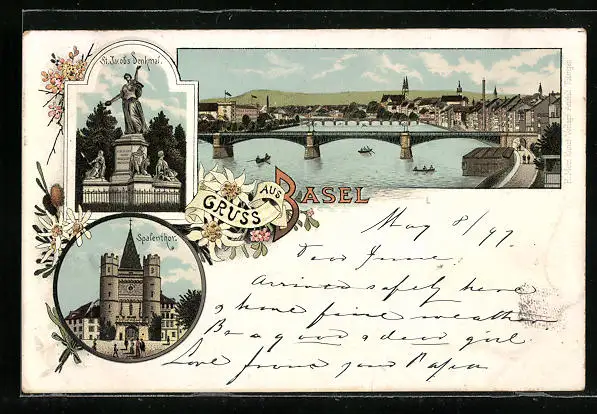 St. Jacobs Denkmal.
GRUSS AUS BASEL
Spalenthor.
May 8/97.
Dear
Arrived safely here
& have fine weather
Be a good & dear girl
Love from your Papa